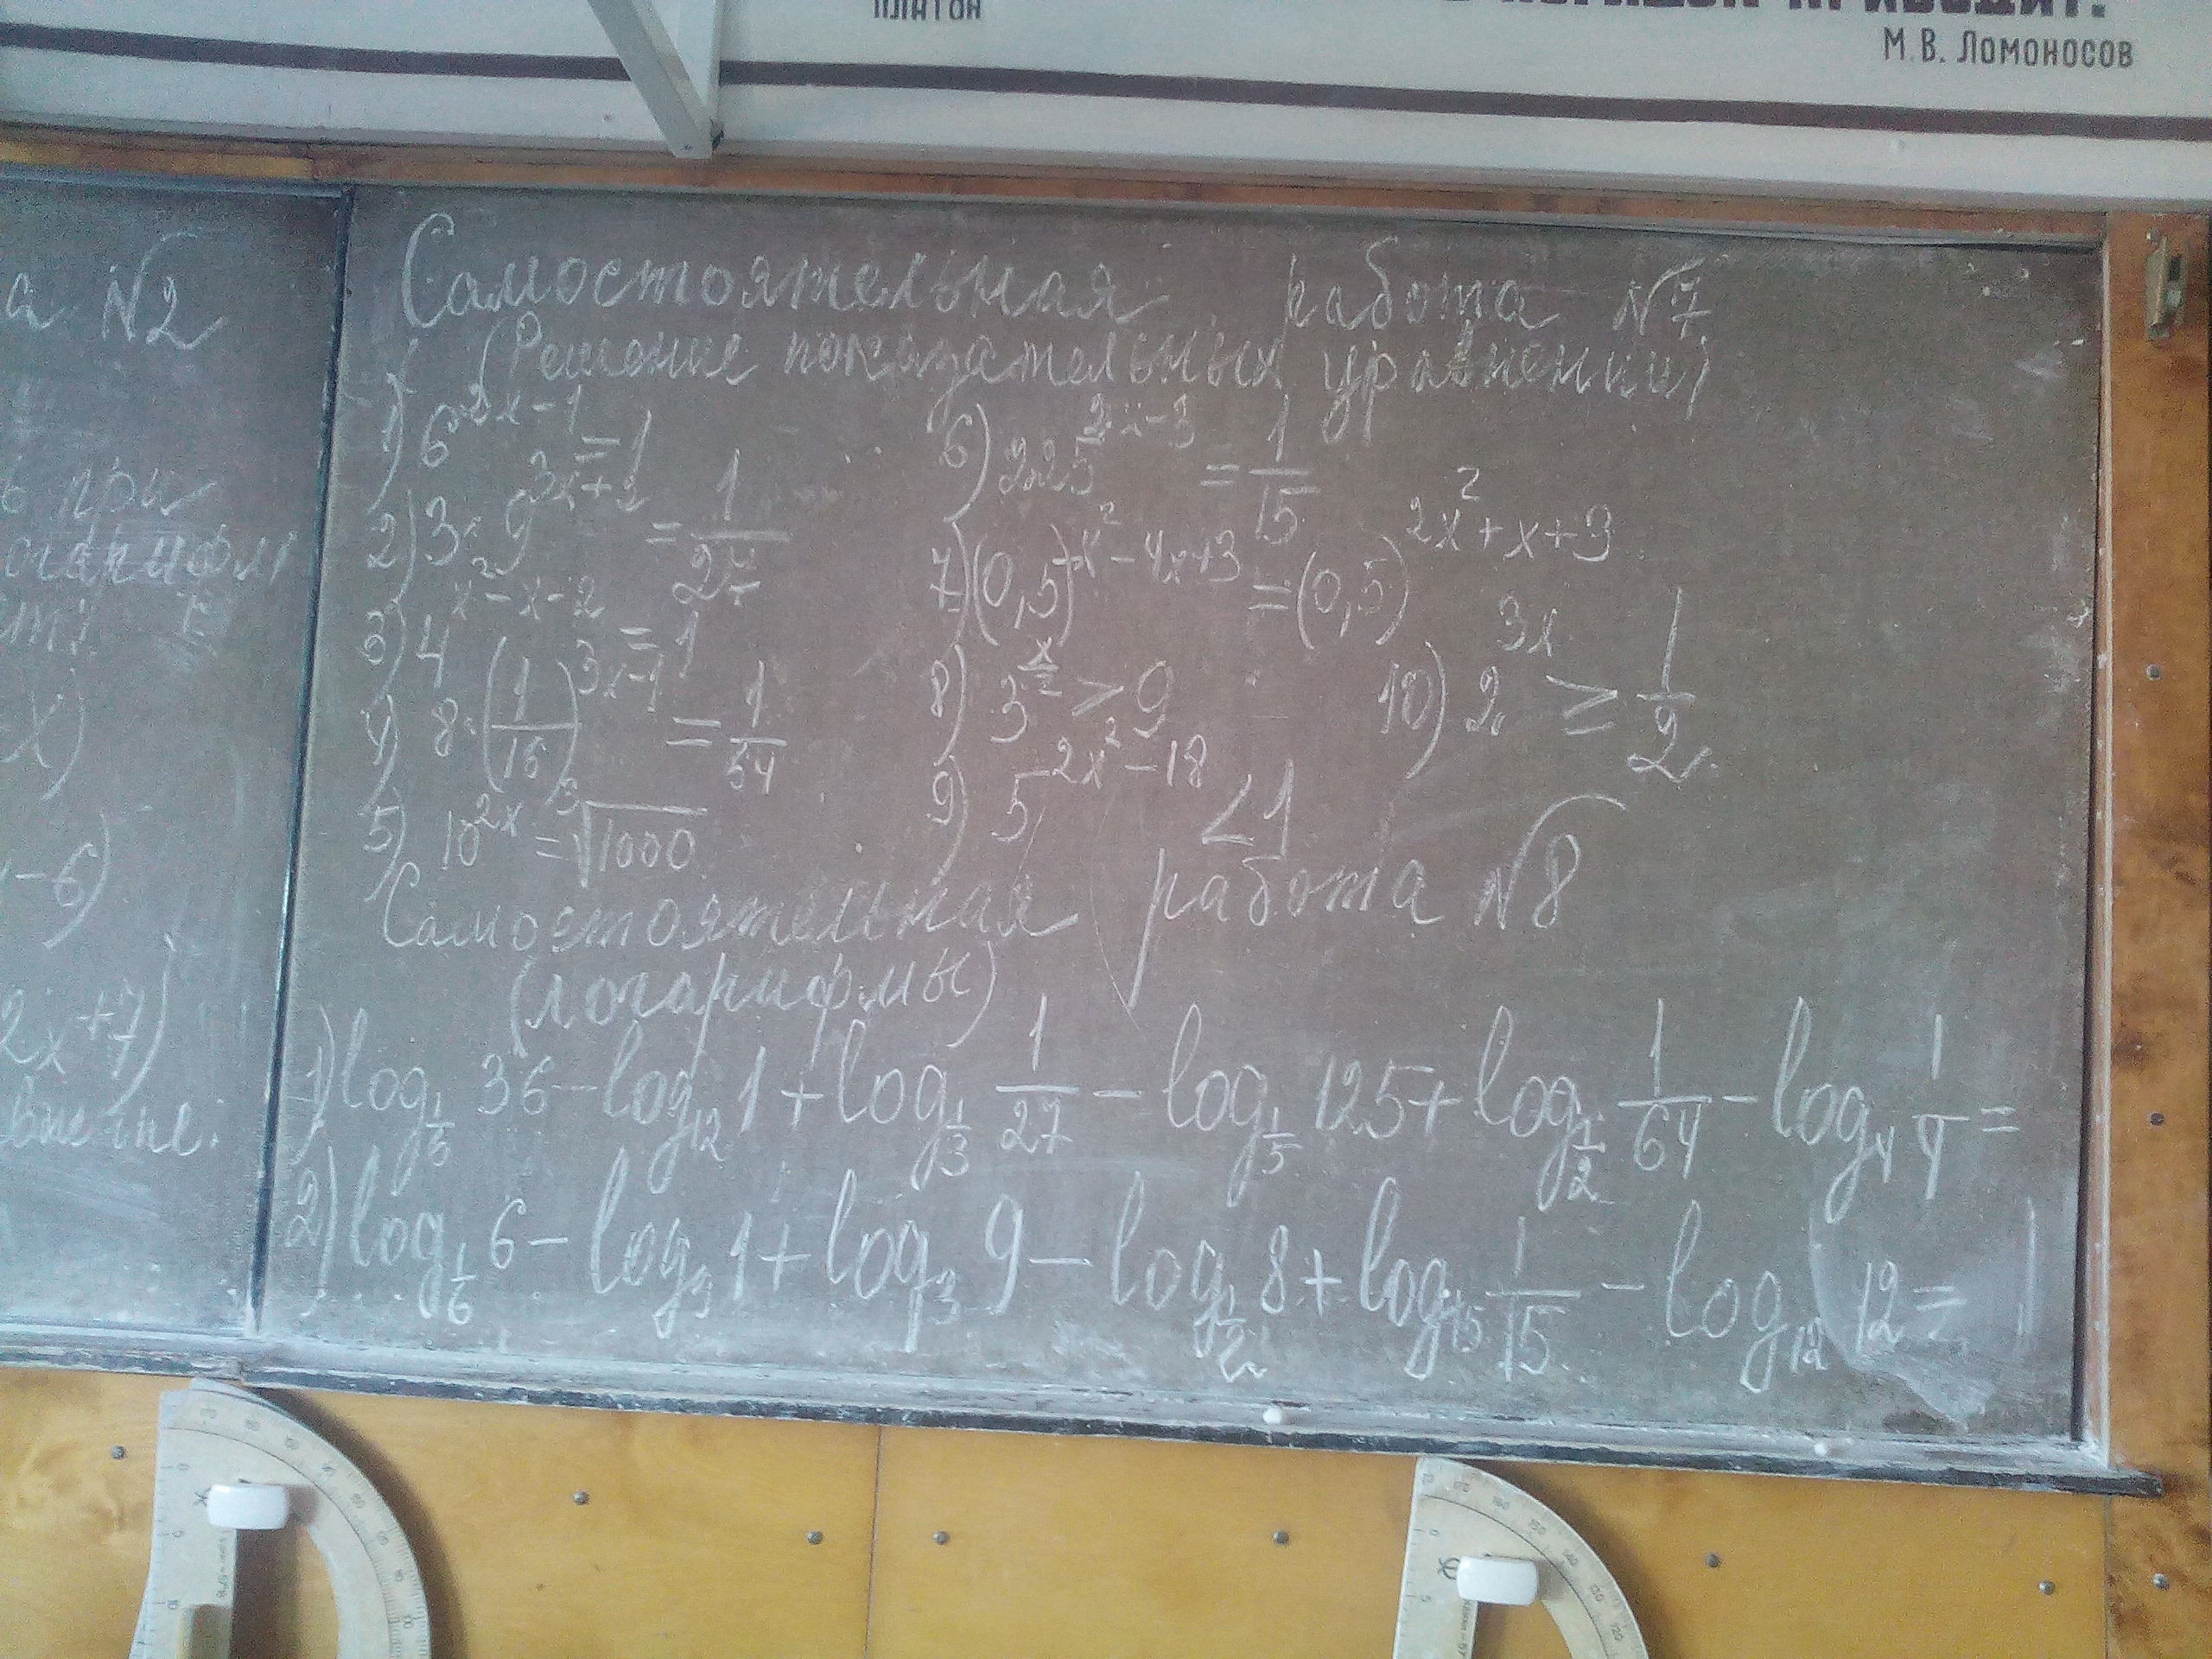 ПЛАТОН
М.В. Ломоносов
а №2
ь при
х)
-6)
2x+7)
Самостоятельная работа №7
(Решение показательных уравнений)
1) 6^{2x-1} = 1
2) 3·9^{3x+1} = 1/27
3) 4^{x²-x-2} = 1
4) 8·(1/15)^{3x-1} = 1/54
5) 10^{2x} = ∛1000
6) 225^{2x-3} = 1/15
7) (0,5)^{x²-4x+3} = (0,5)^{2x²+x+3}
8) 3^{x/2} > 9
9) 5^{2x²-18} < 1
10) 2^{3x} ≥ 1/2
Самостоятельная работа №8
(логарифмы)
1) log_{1/6} 36 - log_{12} 1 + log_{1/3} 1/27 - log_{1/5} 125 + log_{1/2} 1/64 - log_4 1/4 =
2) log_{1/6} 6 - log_3 1 + log_{1/3} 9 - log_{1/2} 8 + log_{15} 1/15 - log_{12} 12 =